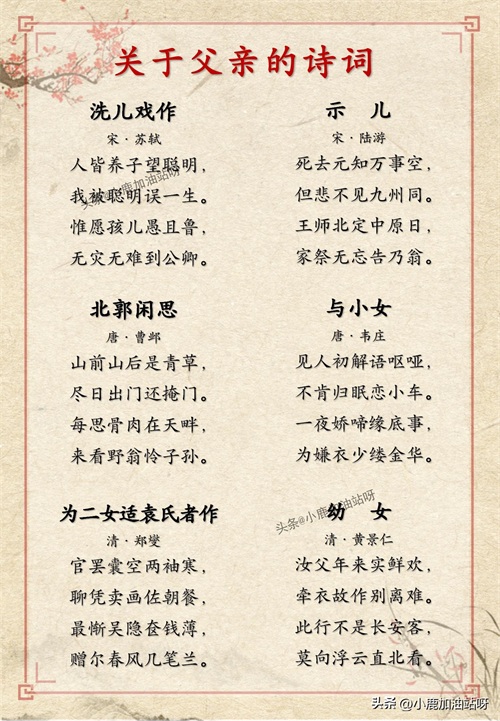 关于父亲的诗词
洗儿戏作
宋·苏轼
人皆养子望聪明，
我被聪明误一生。
惟愿孩儿愚且鲁，
无灾无难到公卿。
示 儿
宋·陆游
死去元知万事空，
但悲不见九州同。
王师北定中原日，
家祭无忘告乃翁。
北郭闲思
唐·曹邺
山前山后是青草，
尽日出门还掩门。
每思骨肉在天畔，
来看野翁怜子孙。
与小女
唐·韦庄
见人初解语呕哑，
不肯归眠恋小车。
一夜娇啼缘底事，
为嫌衣少缕金华。
为二女适袁氏者作
清·郑燮
官罢囊空两袖寒，
聊凭卖画佐朝餐，
最惭吴隐奁钱薄，
赠尔春风几笔兰。
幼 女
清·黄景仁
汝父年来实鲜欢，
牵衣故作别离难。
此行不是长安客，
莫向浮云直北看。
头条@小鹿加油站呀
头条@小鹿加油站呀
头条 @小鹿加油站呀